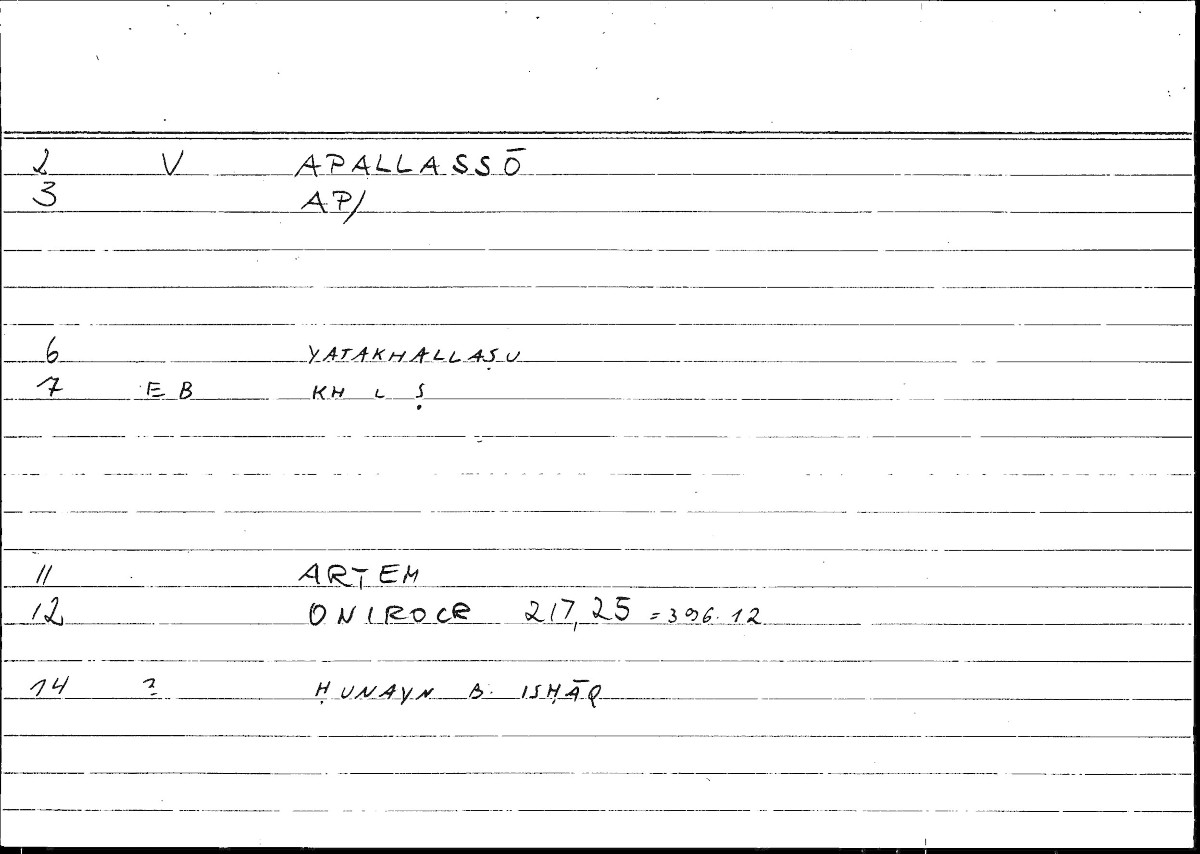 2 V APALLASSŌ
3 AP/
6 YATAKHALLAṢU
7 EB KH L Ṣ
11 ARTEM
12 ONIROCR 217,25 = 396.12
14 ? ḤUNAYN B. ISḤĀQ